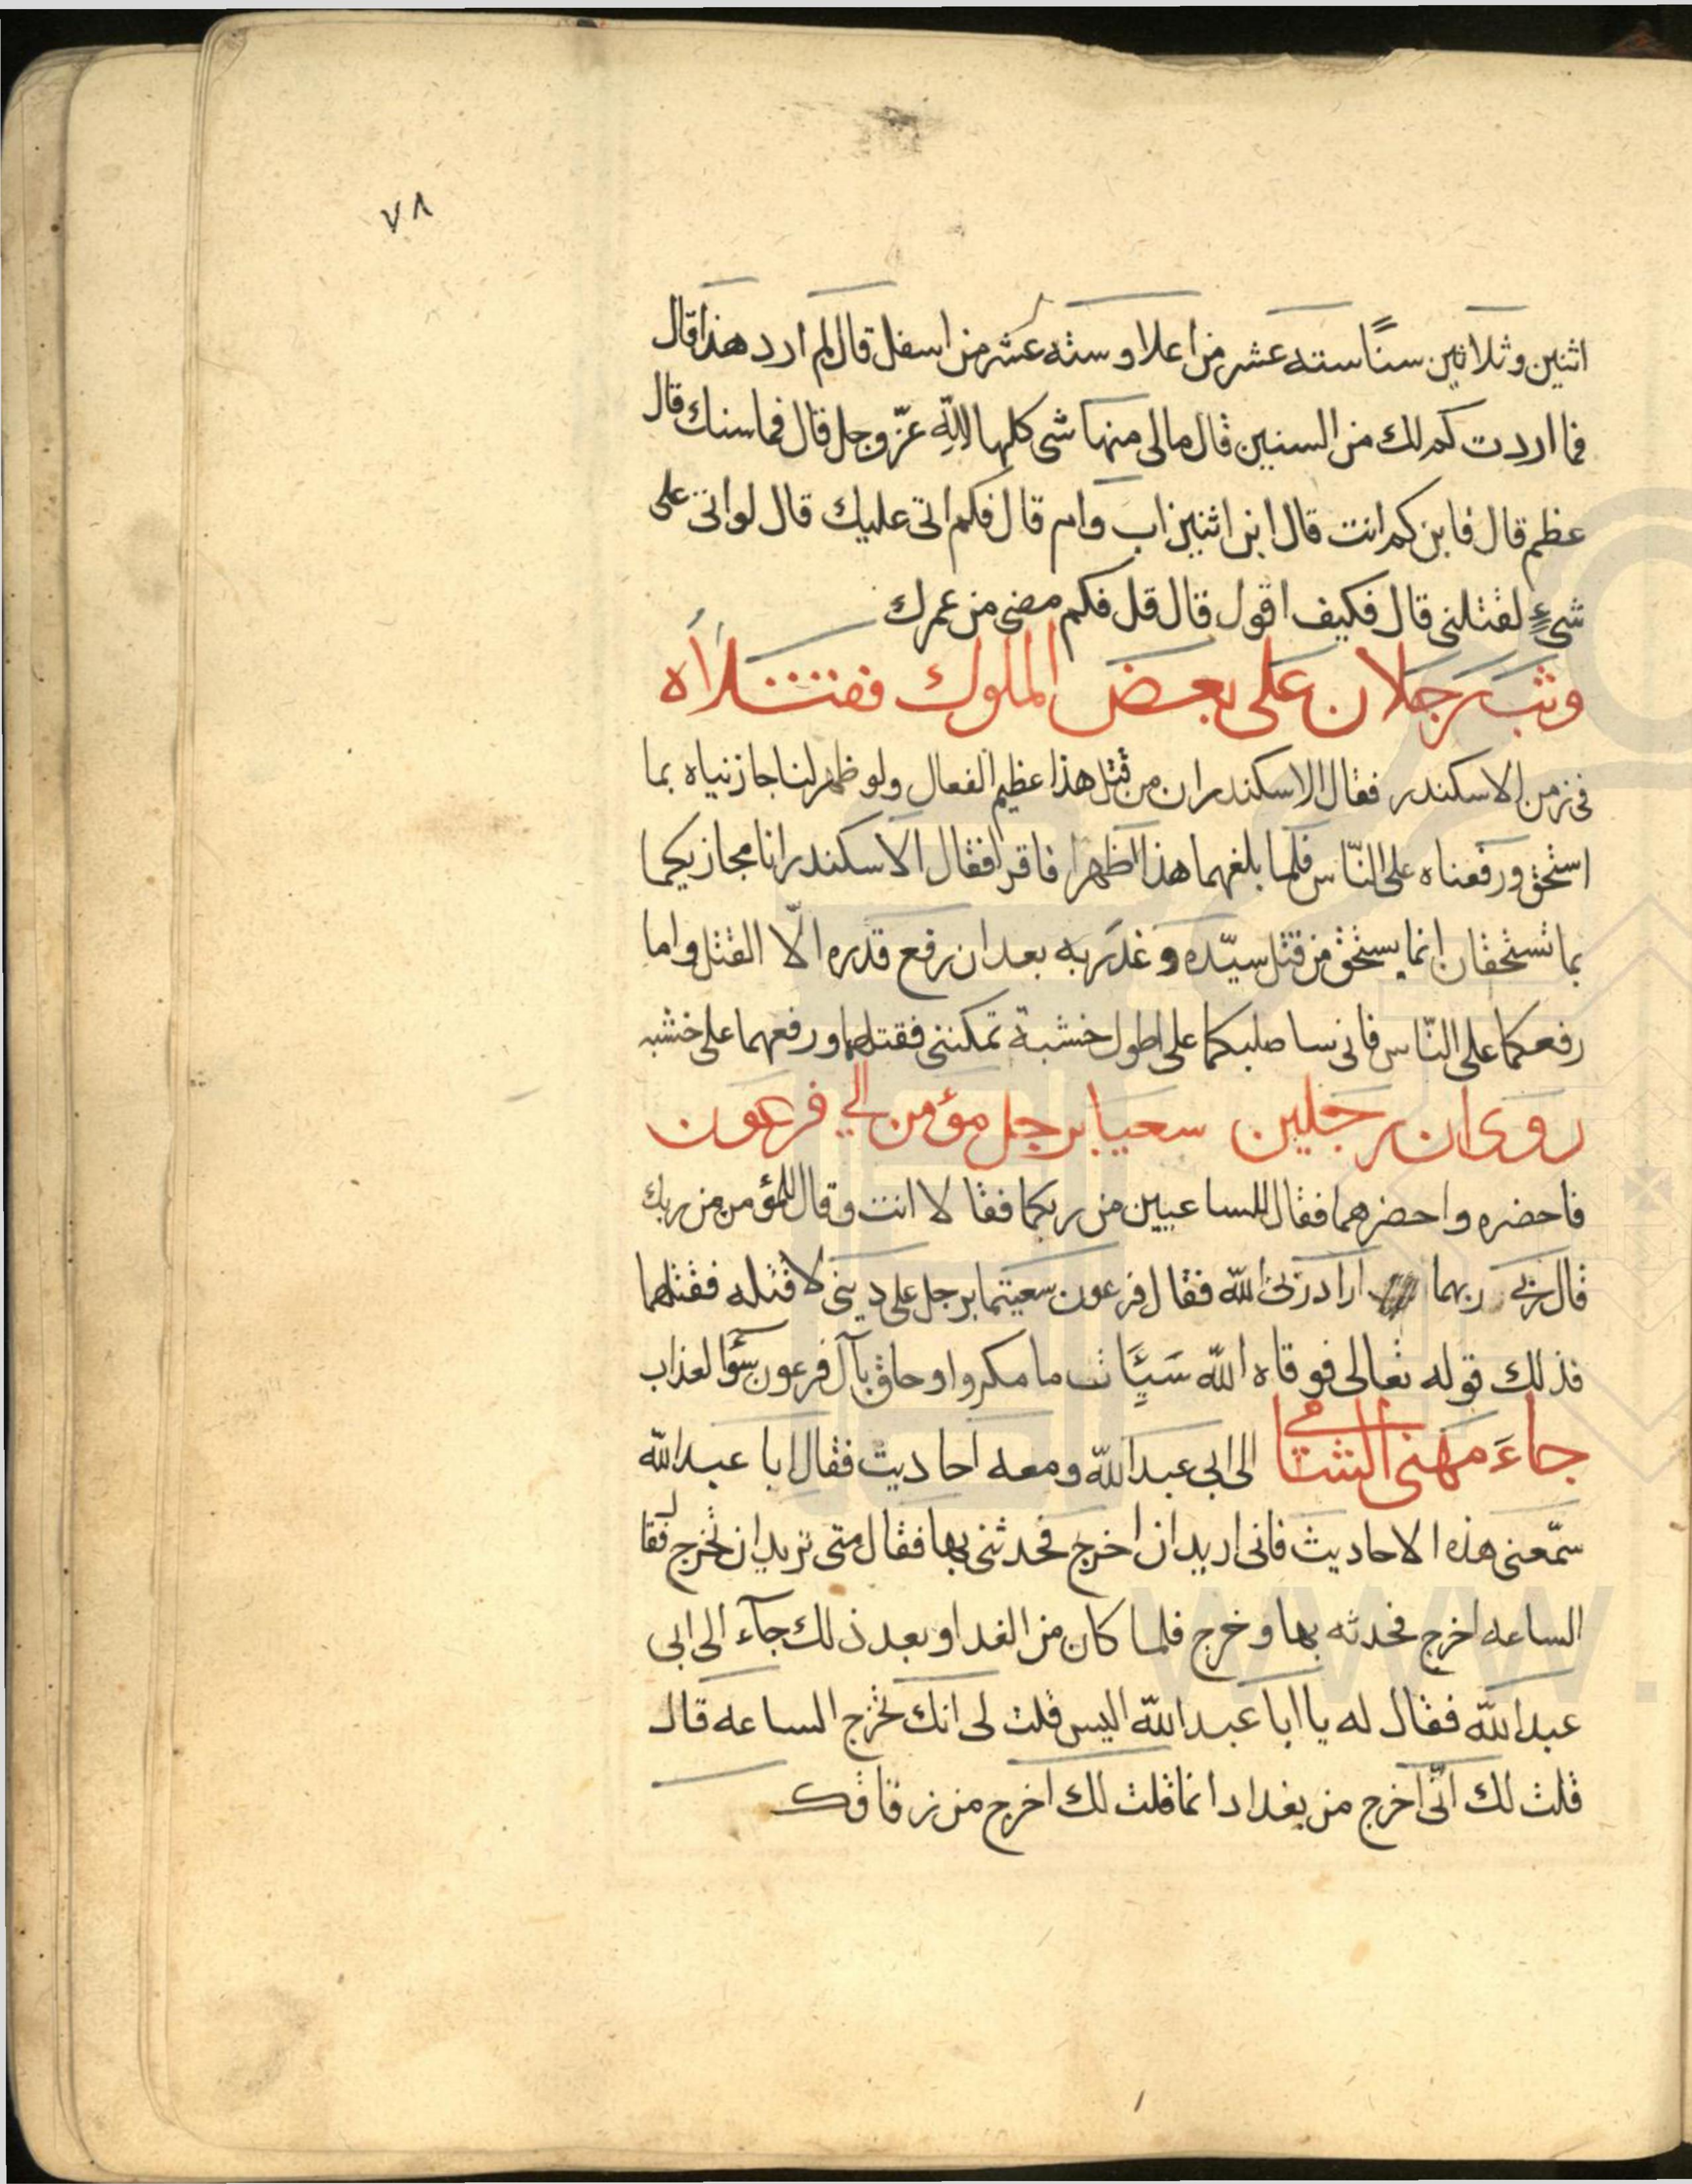 ٧٨
اثنين وثلاثين سنًا سته عشر من اعلا وسته عشر من اسفل قال لم ارد هذا قال
فما اردت كم لك من السنين قال مالى منها شى كلها لله عزّ وجل قال فما سنك قال
عظم قال فابن كم انت قال ابن اثنين اب وام قال فكم اتى عليك قال لو اتى على
شىءٍ لقتلنى قال فكيف اقول قال قل فكم مضى من عمرك
وثب رجلان على بعض الملوك فقتلاه
فى زمن الاسكندر فقال الاسكندر ان من قتل هذا عظيم الفعال ولو ظهر لنا جازنياه بما
استحق ورفعناه على النّاس فلما بلغهما هذا اظهرا فاقرا فقال الاسكندر انا مجازيكما
بما تستحقان انما يستحق من قتل سيّده وغدر به بعد ان رفع قدره الّا القتل واما
رفعكما على النّاس فانى ساصلبكما على اطول خشبة تمكننى فقتلهما ورفعهما على خشبه
روى ان رجلين سعيا برجل مؤمن الى فرعون
فاحضره واحضرهما فقال للساعيين من ربكما فقالا انت وقال للمؤمن من ربك
قال ربى ربهما اراد ربى الله فقال فرعون سعيتما برجل على دينى لاقتله فقتلهما
فذلك قوله تعالى فوقاه الله سَيِّئَات ما مكروا وحاق بآل فرعون سؤ العذاب
جاءَ مهنى الشامى الى ابى عبد الله ومعه احاديث فقال ابا عبد الله
سمّعنى هذه الاحاديث فانى اريد ان اخرج فحدثنى بها فقال متى تريد ان تخرج فقال
الساعه اخرج فحدثه بها وخرج فلما كان من الغد او بعد ذلك جآء الى ابى
عبد الله فقال له يا ابا عبد الله اليس قلت لى انك تخرج الساعه قال
قلت لك انّى اخرج من بغداد انما قلت لك اخرج من زقاقك